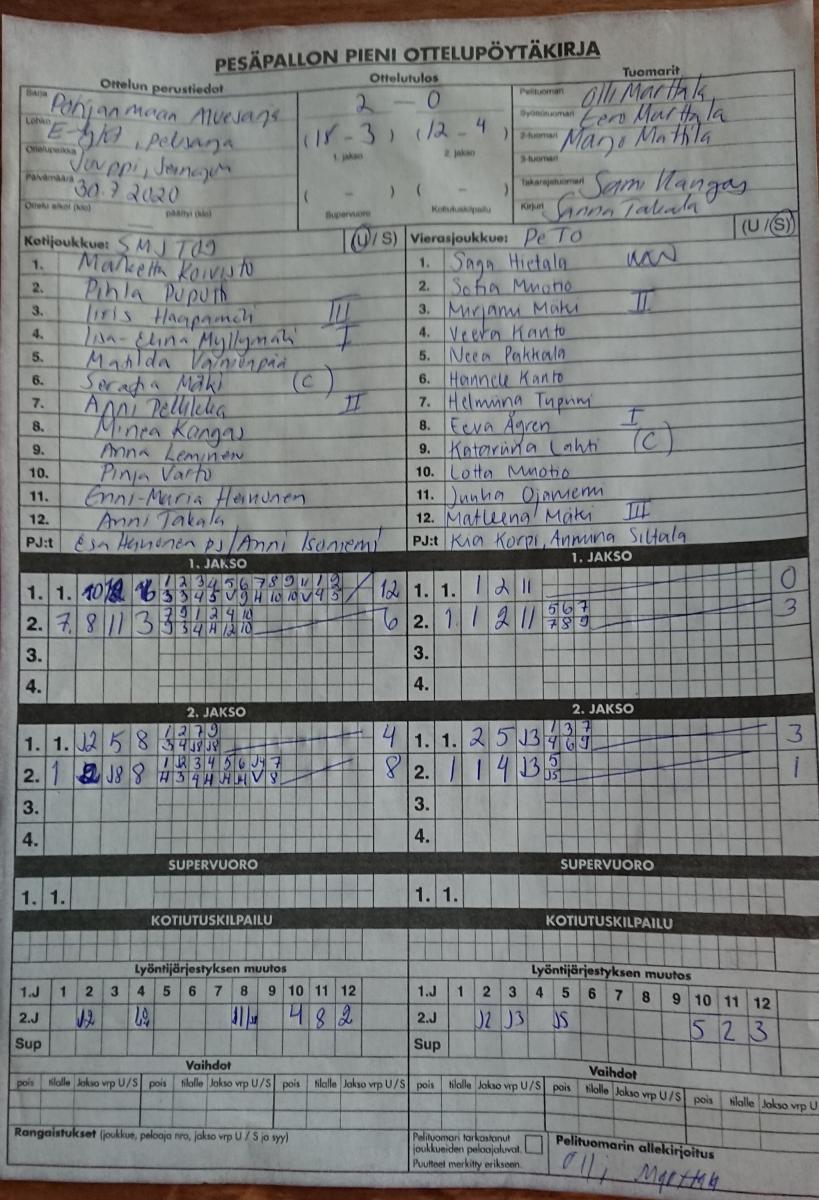 PESÄPALLON PIENI OTTELUPÖYTÄKIRJA
Ottelun perustiedot Ottelutulos Tuomarit
Sarja Pohjanmaan Aluesarja
Lohko
Ottelupaikka
Päivämäärä 30.7.2020
Ottelu alkoi (klo) päättyi (klo)
2 - 0
(18 - 3) (12 - 4)
1. jakso 2. jakso
( - ) ( - )
Supervuoro Kotiutuskilpailu
Pelituomari Olli Marttala
Syöttötuomari Eero Marttala
2-tuomari Marjo Mattila
3-tuomari
Takarajatuomari Sami Kangas
Kirjuri Sanna Takala
Kotijoukkue: SMJ (U / S)
1. Marketta Koivisto
2. Pihla
3. Iiris Haapamäki III
4. Iisa-Elina Myllymäki I
5. Matilda Vainionpää
6. Serafia Mäki (C)
7. Anni Pelkkikka II
8. Minea Kangas
9. Anna Leminen
10. Pinja Varto
11. Enni-Maria Heinonen
12. Anni Takala
PJ:t Esa Heinonen pj / Anni Isoniemi
Vierasjoukkue: PeTo (U / S)
1. Saga Hietala
2. Sofia Muotio
3. Mirjami Mäki II
4. Veera Kanto
5. Neea Pakkala
6. Hannele Kanto
7. Helmiina Tupuni
8. Eeva Ågren I
9. Katariina Lahti (C)
10. Lotta Muotio
11. Ojaniemi
12. Matleena Mäki III
PJ:t Kia Korpi, Anniina Siltala
1. JAKSO
1. 1. 12
2. 7 8 11 3 6
3.
4.
1. JAKSO
1. 1. 1 2 11 0
2. 1. 1 2 11 5 6 7 3
7 8 9
3.
4.
2. JAKSO
1. 1. J2 5 8 1 2 7 9 4
3 4 J8 J8
2. 1 2 J8 8 8
3.
4.
2. JAKSO
1. 1. 2 5 J3 1 3 7 3
4 6 9
2. 1 1 4 J3 5 1
J5
3.
4.
SUPERVUORO
1. 1.
SUPERVUORO
1. 1.
KOTIUTUSKILPAILU
KOTIUTUSKILPAILU
Lyöntijärjestyksen muutos
1.J 1 2 3 4 5 6 7 8 9 10 11 12
2.J J2 4 8 2
Sup
Lyöntijärjestyksen muutos
1.J 1 2 3 4 5 6 7 8 9 10 11 12
2.J J2 J3 J5 5 2 3
Sup
Vaihdot
pois tilalle Jakso vrp U/S pois tilalle Jakso vrp U/S pois tilalle Jakso vrp U/S
Vaihdot
pois tilalle Jakso vrp U/S pois tilalle Jakso vrp U/S pois tilalle Jakso vrp U
Rangaistukset (joukkue, pelaaja nro, jakso vrp U / S ja syy)
Pelituomari tarkastanut
joukkueiden pelaajaluvat.
Puutteet merkitty erikseen.
Pelituomarin allekirjoitus
Olli Marttala